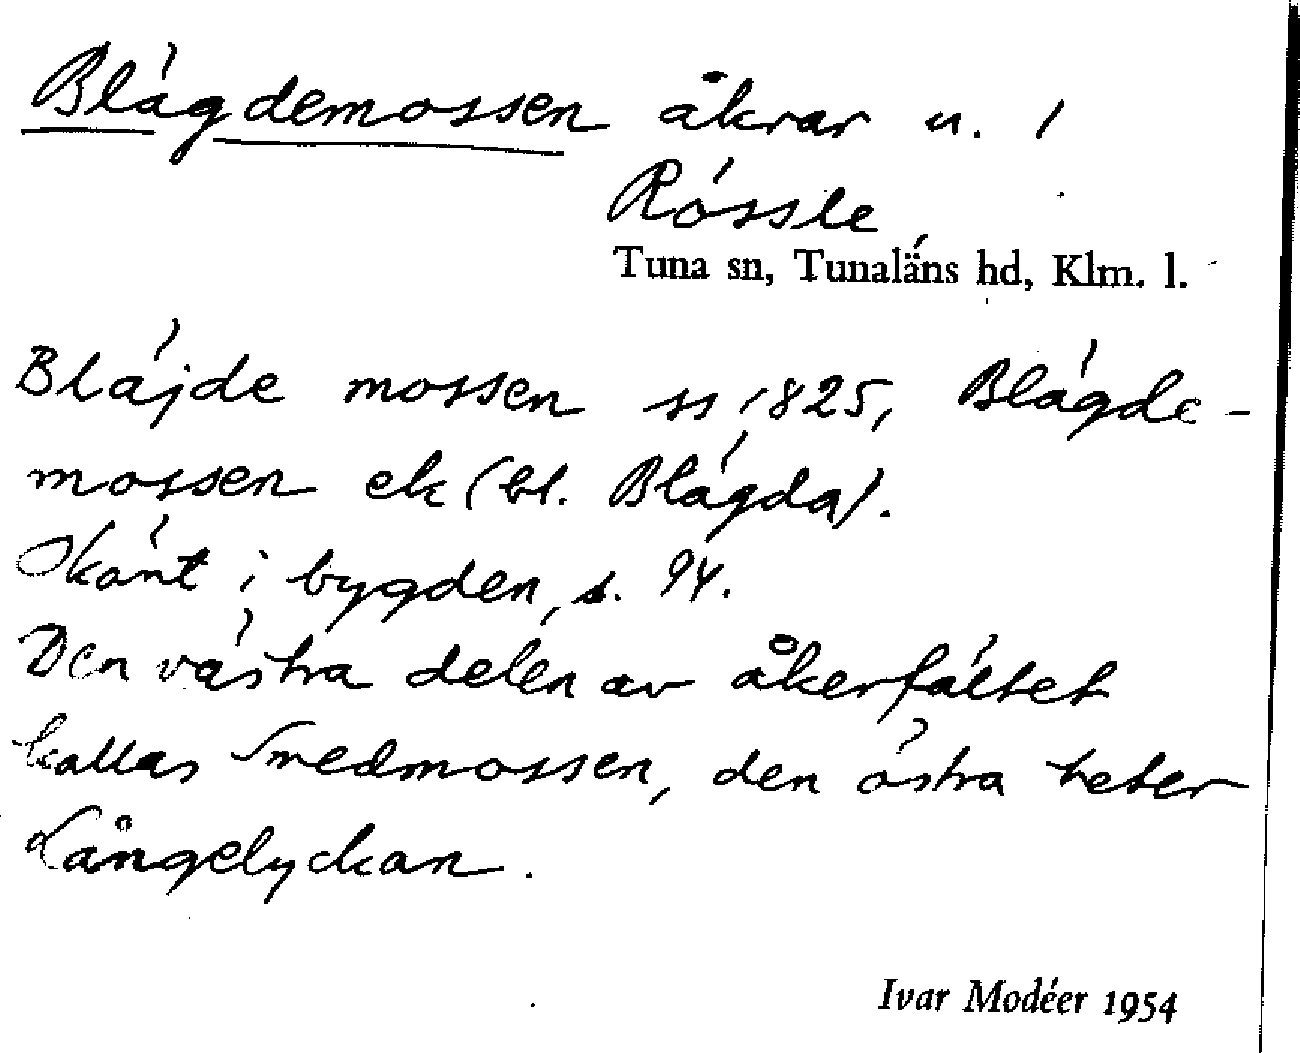 Blägdemossen åkrar u. 1
Rössle
Tuna sn, Tunaläns hd, Klm. l.
Bläjde mossen ss 1825, Blägde-
mossen ek (bl. Blägda).
Okänt i bygden, s. 94.
Den västra delen av åkerfältet
kallas Smedmossen, den östra heter
Långelyckan.
Ivar Modéer 1954